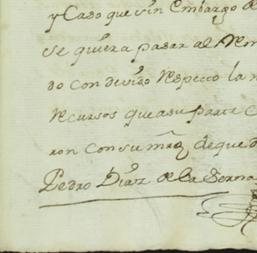 y Caso que sin Embargo de
se quiera pasar al Rem
do con devido Respecto la
Recursos que a su parte
ron con su mrd de que d
Pedro Diaz de la Serna